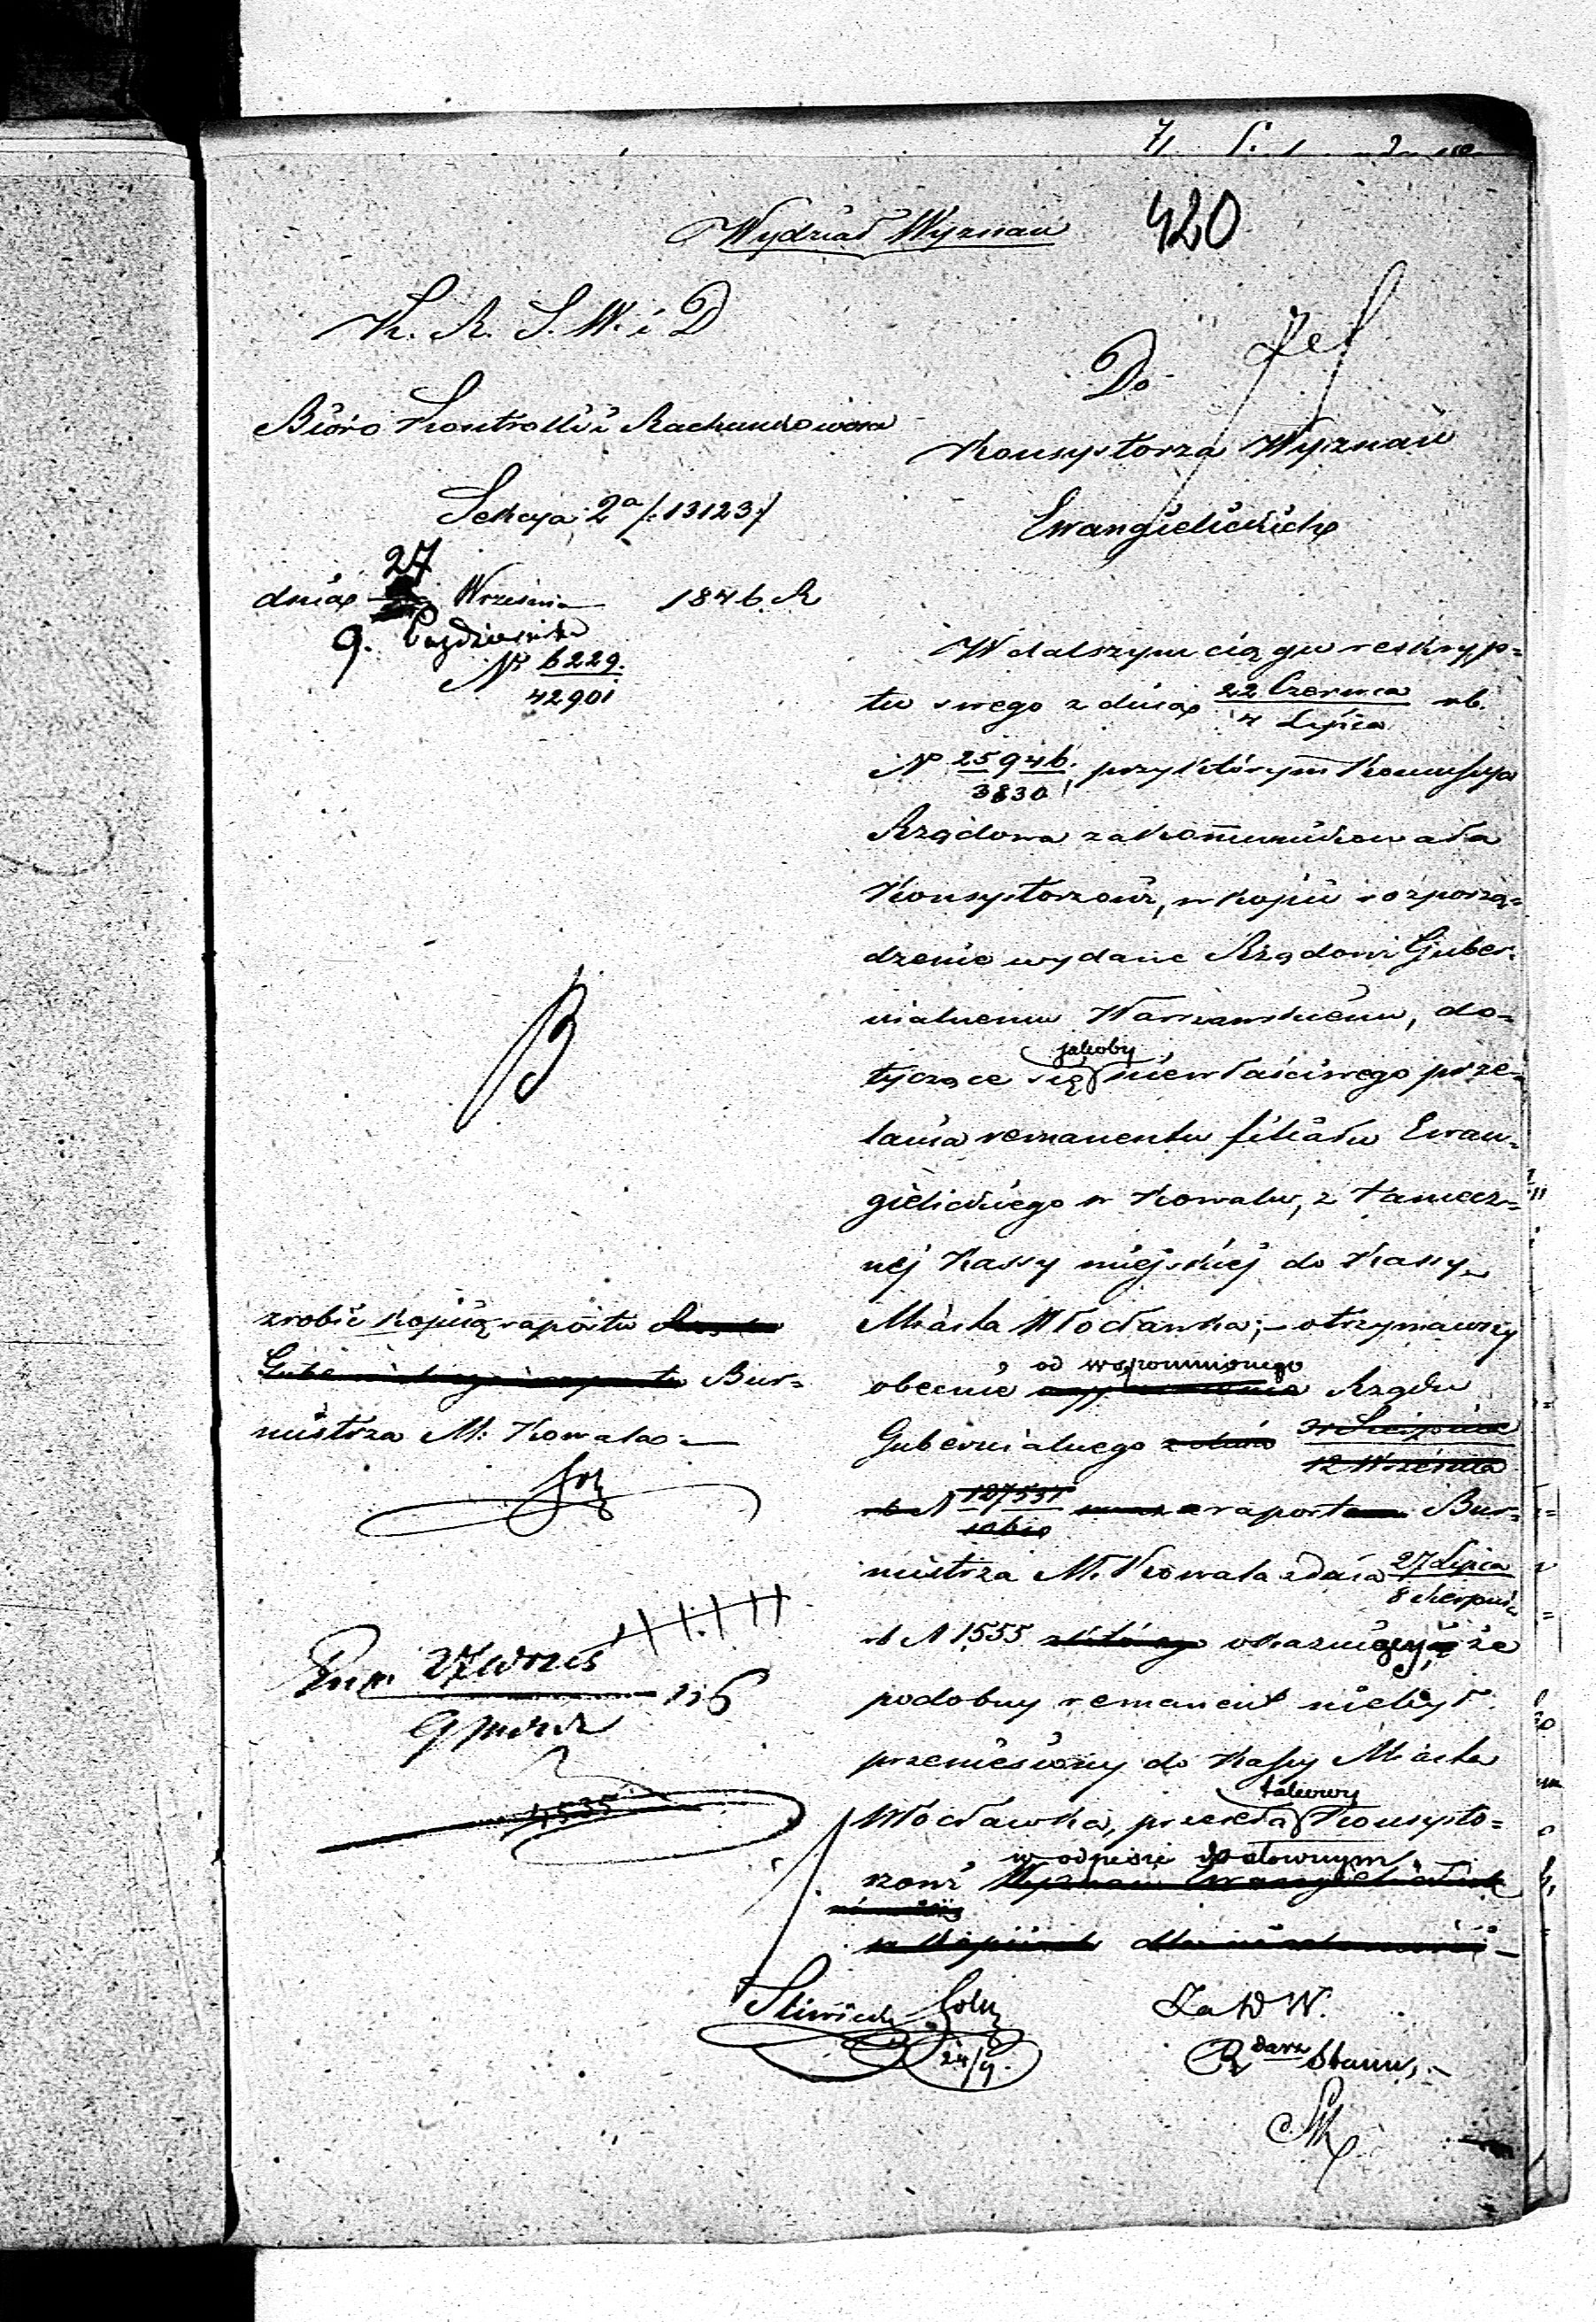 420
Wydział Wyznań
K. R. S. W. i D
Bióro Kontrolli i Rachunkowości
Sekcya 2a /:13123:/
dnia 27 Września 1846 R
9. Października
No 6229.
42901
Do
Konsystorza Wyznań
Ewangielickich
W dalszym ciągu reskryp=
tu swego z dnia 22 Czerwca rb.
4 Lipca
No 25946. przy którym Kommissya
3830
Rządowa zakommunikowała
Konsystorzowi, w kopii rozporzą=
dzenie wydane Rządowi Guber=
nialnemu Warszawskiemu, do=
jakoby
tyczące się niewłaściwego prze=
lania remanentu filiału Ewan=
gielickiego w Kowalu, z tamecz=
nej Kassy miejskiej do Kassy
Miasta Włocławka; – otrzymawszy
od wspomnionego
obecnie Rządu
Gubernialnego z dnia 31 Sierpnia
12 Września
rb N 127537 raport Bur=
mistrza M. Kowala z dnia 27 Lipca
8 Sierpnia
rb N 1555 którego okazujący że
podobny remanent nie był
przeniesiony do Kassy Miasta
takowy
Włocławka, przesyła Konsysto=
w odpisie dosłownym
rzowi Wyznań Ewangielickich
w kopiach
zrobić kopią raportu
Bur=
mistrza M: Kowala –
27 Wrześ
9 Paźdz
4535
24/9.
Za D W.
R Stanu,